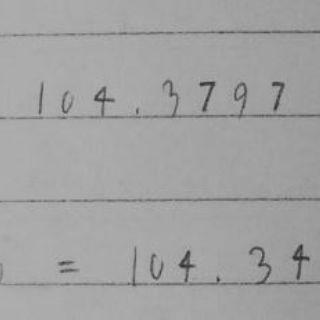 104.3797
= 104.34